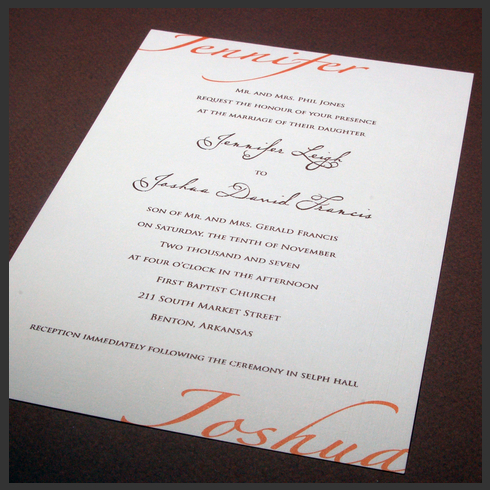 Jennifer
Mr. and Mrs. Phil Jones
request the honour of your presence
at the marriage of their daughter
Jennifer Leigh
to
Joshua David Francis
son of Mr. and Mrs. Gerald Francis
on Saturday, the tenth of November
Two thousand and seven
at four o'clock in the afternoon
First Baptist Church
211 South Market Street
Benton, Arkansas
reception immediately following the ceremony in Selph Hall
Joshua